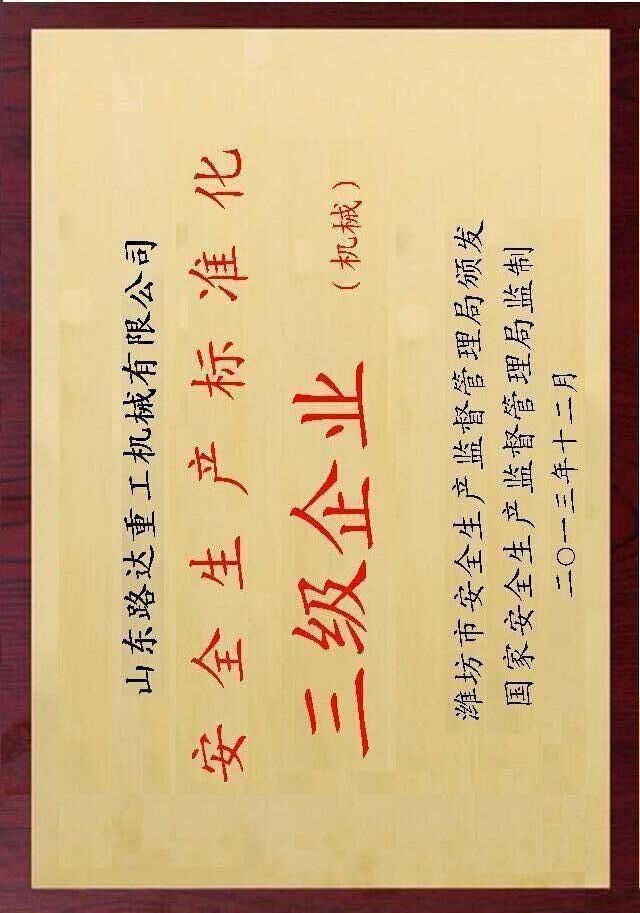 山东路达重工机械有限公司
安全生产标准化
三级企业（机械）
潍坊市安全生产监督管理局颁发
国家安全生产监督管理局监制
二〇一三年十二月